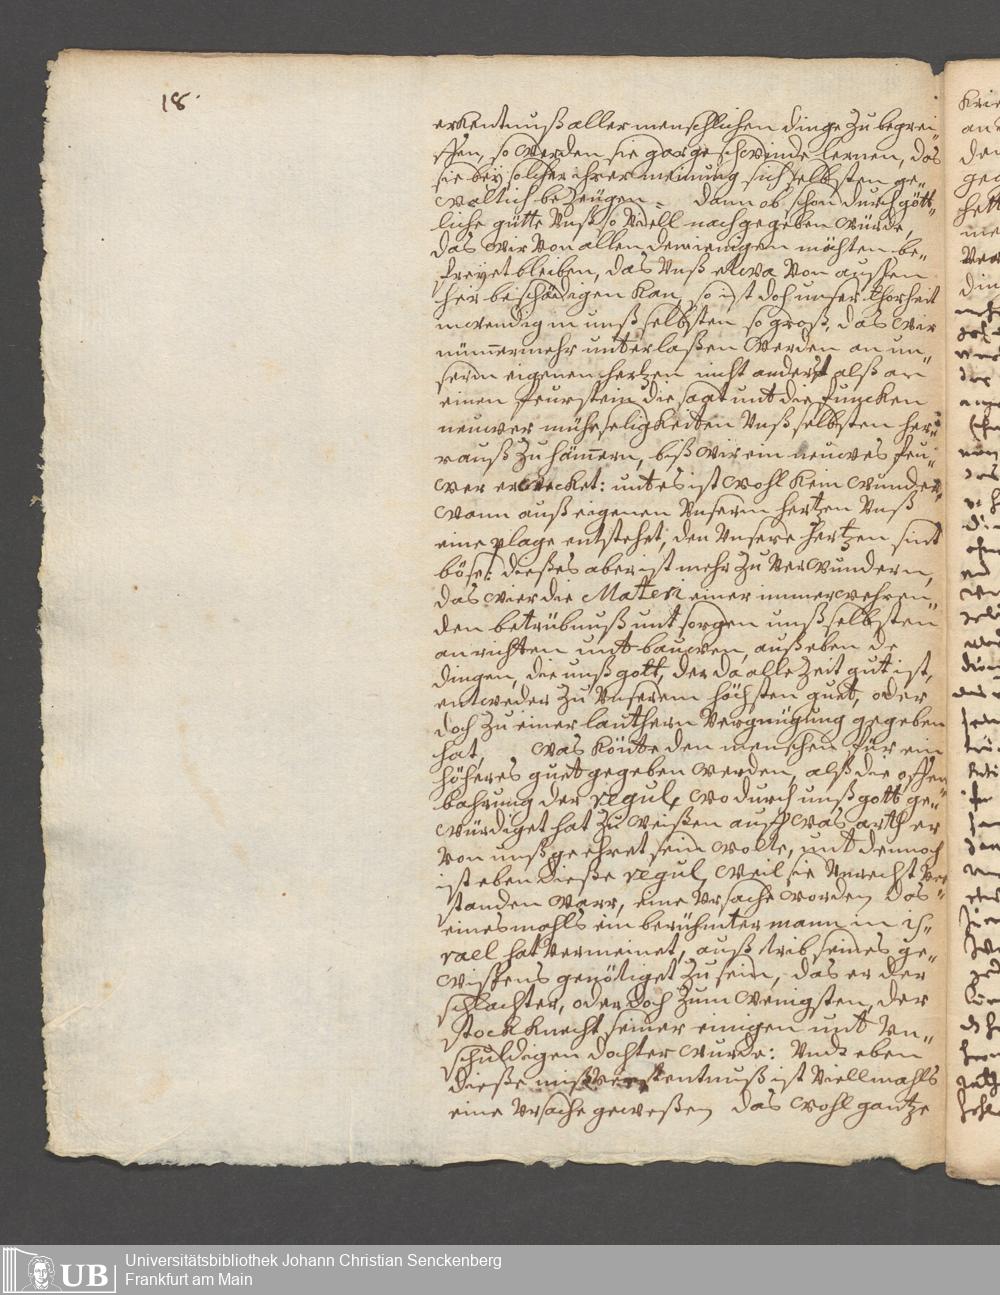 18.
erkentnuß aller menschlichen dinge zu begrei-
ffen, so werden sie gar geschwinde lernen, das
sie bey solcher ihrer meinung sich selbsten ge-
waltich bezeugen. Dann ob schon durch gött-
liche gütte Unß so Viell nachgegeben würde,
das wir Von allen demienigen möchten be-
freyet bleiben, das Unß etwa Von aussen
her beschädigen kan, so ist doch unser thorheit
inwendig in unß selbsten so groß, das wir
nümmermehr unterlaßen werden an un-
serm eigenen hertzen nicht anderst alß an
einen feurstein die saat unt die funcken
neuwer mühseligkeiten Unß selbsten her-
rauß zu hämmern, biß wir ein neuwes feu-
wer erwecket: unt es ist wohl kein wunder,
wann auß eigenen Unserm hertzen Unß
eine plage entstehet, den Unsere hertzen sint
böse: dießes aber ist mehr zu Verwundern,
das wier die Materi einer immerwehren-
den betrübnuß unt sorgen unß selbsten
anrichten unt bauwen, auß eben de
dingen, die unß gott, der da alle Zeit gut ist,
entweder zu Unserem höchsten guet, oder
doch zu einer lauthern Vergnügung gegeben
hat, was könte den menschen für ein
höheres guet gegeben werden, alß die offen
bahrung der regul, wo durch unß gott ge-
würdiget hat zu weißen auff was arth er
Von unß geehret sein wolte, unt dennoch
ist eben dieße regul, weil sie Unrecht Ver
standen warr, eine Ursache worden, das
einesmahls ein berühmter mann in is-
rael hat Vermeinet, auß trib seines ge-
wissens genötiget zu sein, das er der
schlachter, oder doch zum wenigsten, der
stockknecht seiner einigen unt Un-
schuldigen dochter wurde: Undt eben
dieße mißverstentnuß ist Viellmahls
eine Ursache geweßen, das wohl gantze
Universitätsbibliothek Johann Christian Senckenberg
Frankfurt am Main
UB